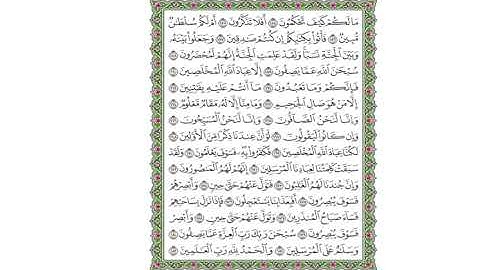 مَا لَكُمْ كَيْفَ تَحْكُمُونَ ۝ أَفَلَا تَذَكَّرُونَ ۝ أَمْ لَكُمْ سُلْطَٰنٌ
مُّبِينٌ ۝ فَأْتُوا۟ بِكِتَٰبِكُمْ إِن كُنتُمْ صَٰدِقِينَ ۝ وَجَعَلُوا۟ بَيْنَهُۥ
وَبَيْنَ ٱلْجِنَّةِ نَسَبًا ۚ وَلَقَدْ عَلِمَتِ ٱلْجِنَّةُ إِنَّهُمْ لَمُحْضَرُونَ ۝
سُبْحَٰنَ ٱللَّهِ عَمَّا يَصِفُونَ ۝ إِلَّا عِبَادَ ٱللَّهِ ٱلْمُخْلَصِينَ ۝
فَإِنَّكُمْ وَمَا تَعْبُدُونَ ۝ مَآ أَنتُمْ عَلَيْهِ بِفَٰتِنِينَ ۝
إِلَّا مَنْ هُوَ صَالِ ٱلْجَحِيمِ ۝ وَمَا مِنَّآ إِلَّا لَهُۥ مَقَامٌ مَّعْلُومٌ ۝
وَإِنَّا لَنَحْنُ ٱلصَّآفُّونَ ۝ وَإِنَّا لَنَحْنُ ٱلْمُسَبِّحُونَ ۝
وَإِن كَانُوا۟ لَيَقُولُونَ ۝ لَوْ أَنَّ عِندَنَا ذِكْرًا مِّنَ ٱلْأَوَّلِينَ ۝
لَكُنَّا عِبَادَ ٱللَّهِ ٱلْمُخْلَصِينَ ۝ فَكَفَرُوا۟ بِهِۦ ۖ فَسَوْفَ يَعْلَمُونَ ۝ وَلَقَدْ
سَبَقَتْ كَلِمَتُنَا لِعِبَادِنَا ٱلْمُرْسَلِينَ ۝ إِنَّهُمْ لَهُمُ ٱلْمَنصُورُونَ ۝
وَإِنَّ جُندَنَا لَهُمُ ٱلْغَٰلِبُونَ ۝ فَتَوَلَّ عَنْهُمْ حَتَّىٰ حِينٍ ۝ وَأَبْصِرْهُمْ
فَسَوْفَ يُبْصِرُونَ ۝ أَفَبِعَذَابِنَا يَسْتَعْجِلُونَ ۝ فَإِذَا نَزَلَ بِسَاحَتِهِمْ
فَسَآءَ صَبَاحُ ٱلْمُنذَرِينَ ۝ وَتَوَلَّ عَنْهُمْ حَتَّىٰ حِينٍ ۝ وَأَبْصِرْ
فَسَوْفَ يُبْصِرُونَ ۝ سُبْحَٰنَ رَبِّكَ رَبِّ ٱلْعِزَّةِ عَمَّا يَصِفُونَ ۝
وَسَلَٰمٌ عَلَى ٱلْمُرْسَلِينَ ۝ وَٱلْحَمْدُ لِلَّهِ رَبِّ ٱلْعَٰلَمِينَ ۝